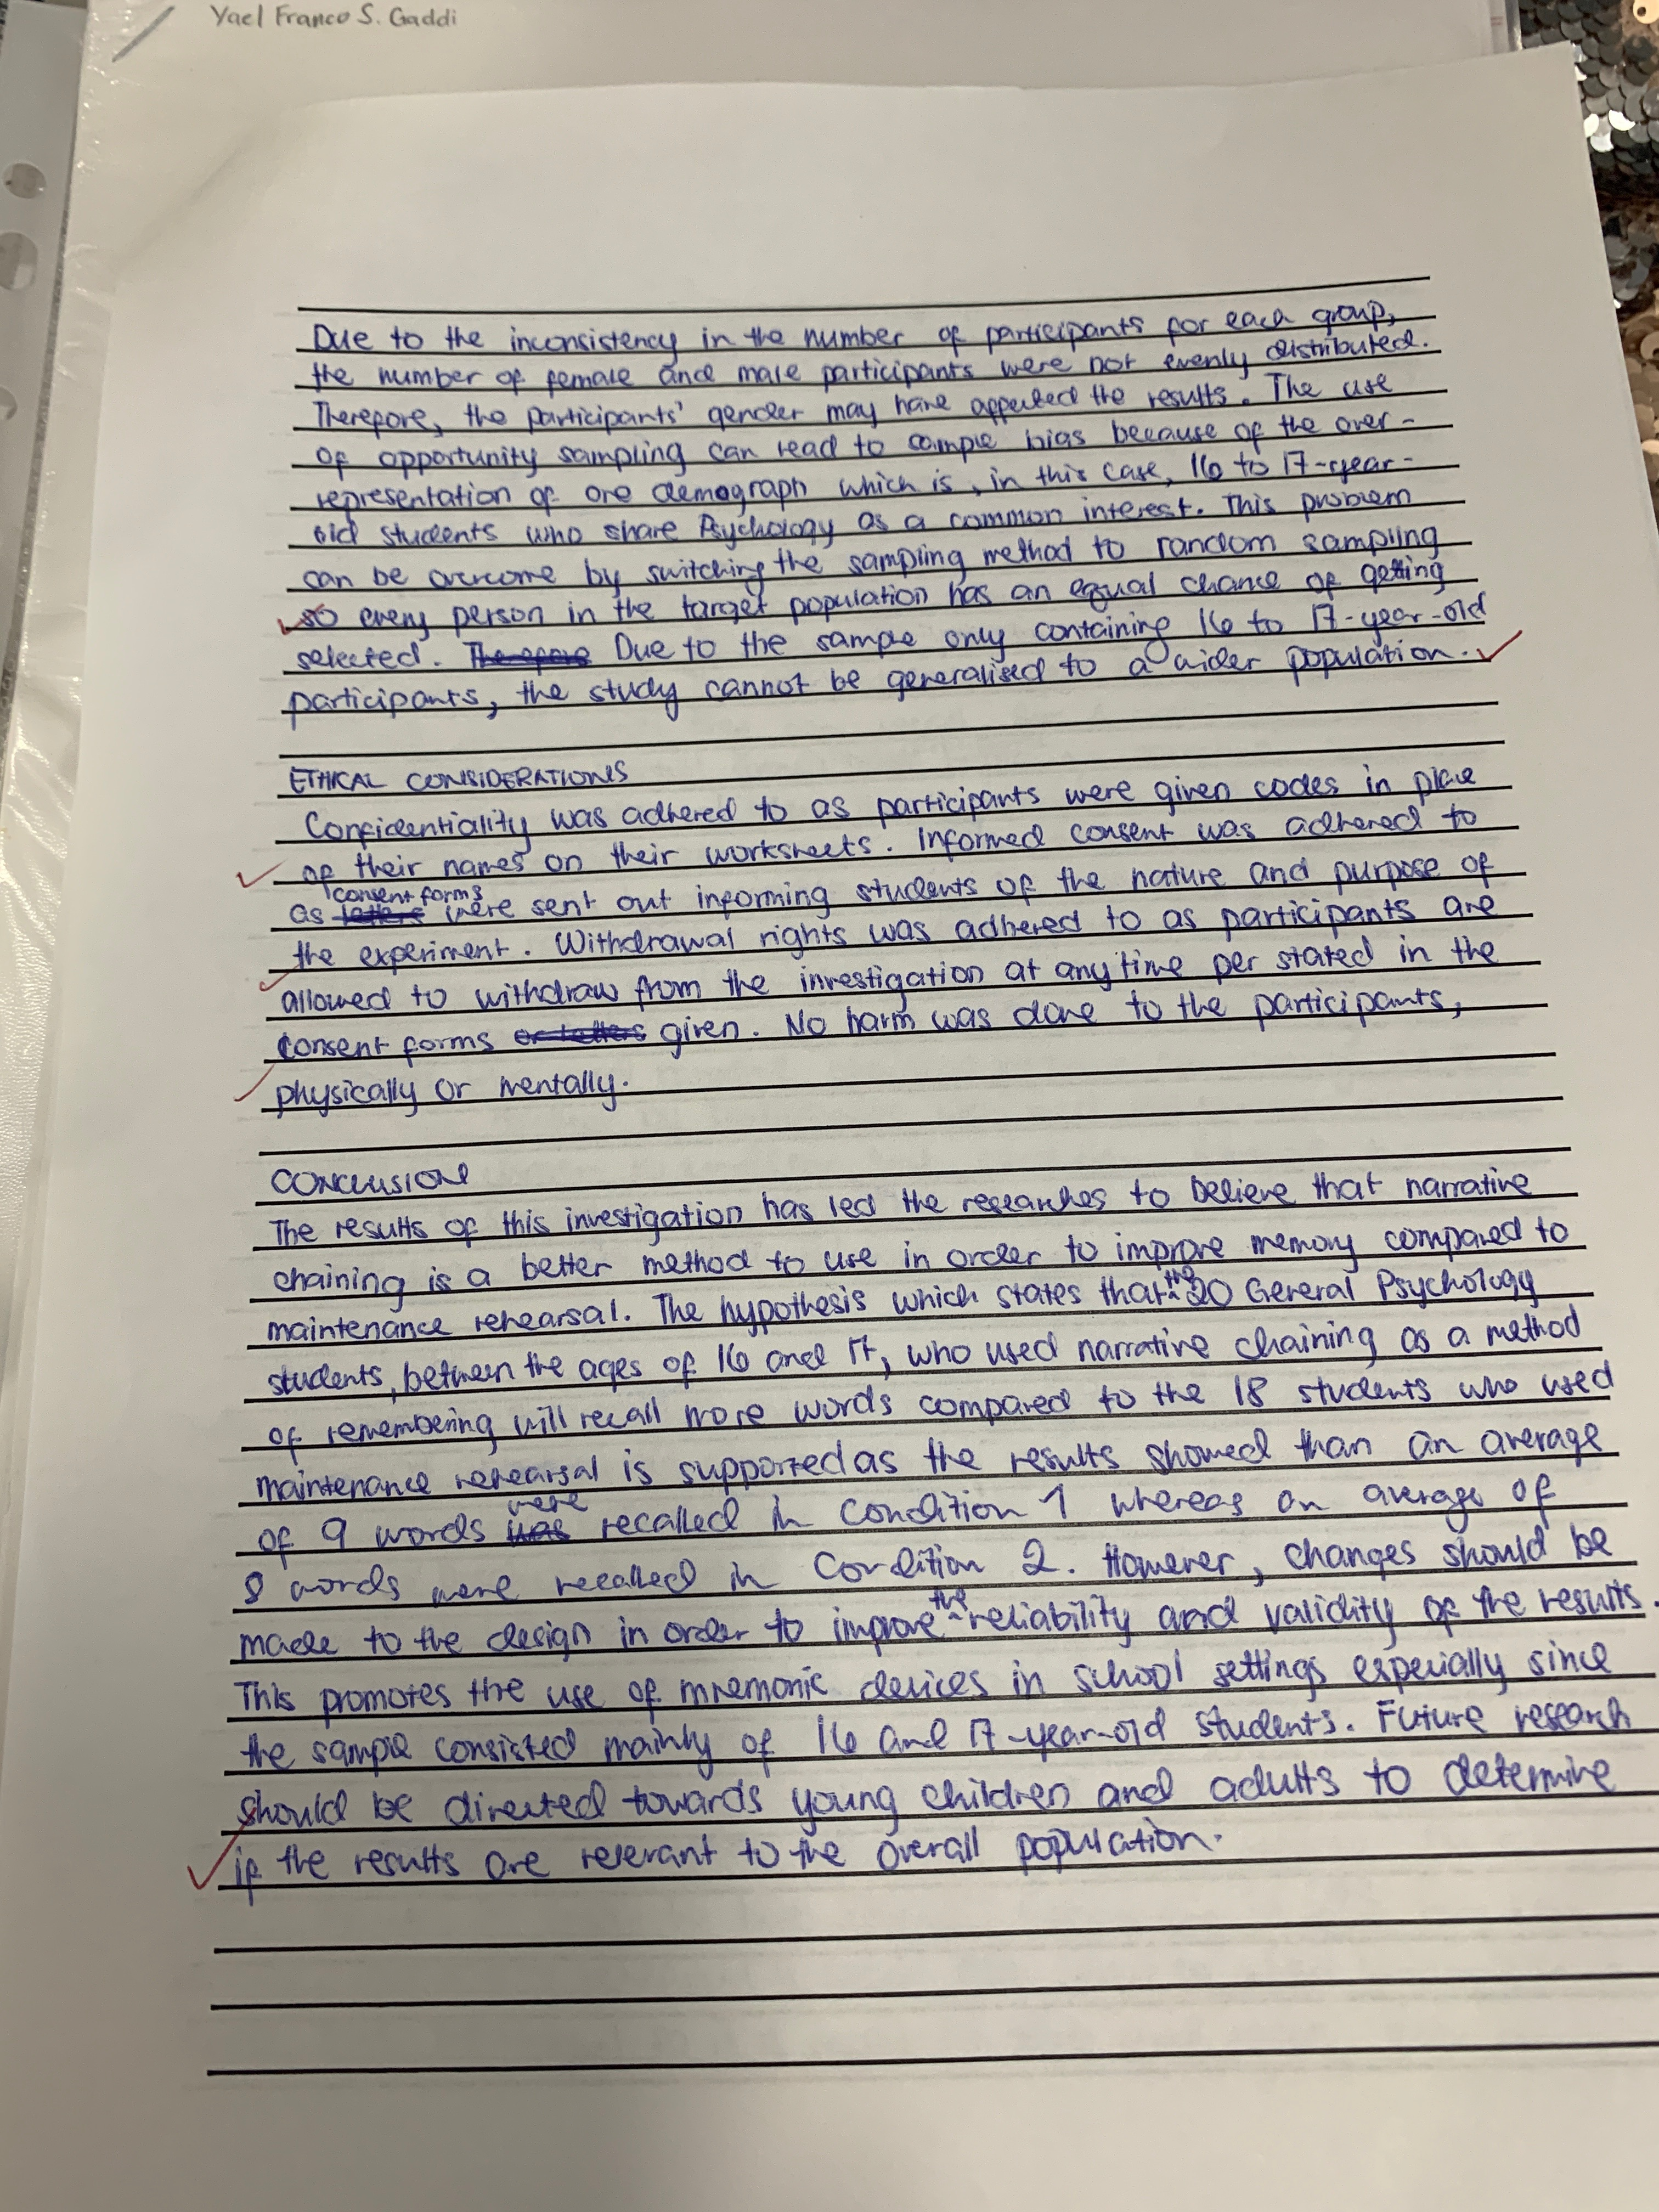 Yael Franco S. Gaddi
Due to the inconsistency in the number of participants for each group,
the number of female and male participants were not evenly distributed.
Therefore, the participants' gender may have affected the results. The use
of opportunity sampling can lead to sample bias because of the over-
representation of one demograph which is, in this case, 16 to 17-year-
old students who share Psychology as a common interest. This problem
can be overcome by switching the sampling method to random sampling
so every person in the target population has an equal chance of getting
selected. Therefore Due to the sample only containing 16 to 17-year-old
participants, the study cannot be generalised to a wider population.
ETHICAL CONSIDERATIONS
Confidentiality was adhered to as participants were given codes in place
of their names on their worksheets. Informed consent was adhered to
as letters consent forms were sent out informing students of the nature and purpose of
the experiment. Withdrawal rights was adhered to as participants are
allowed to withdraw from the investigation at any time per stated in the
consent forms or letters given. No harm was done to the participants,
physically or mentally.
CONCLUSION
The results of this investigation has led the researches to believe that narrative
chaining is a better method to use in order to improve memory compared to
maintenance rehearsal. The hypothesis which states that the 20 General Psychology
students, between the ages of 16 and 17, who used narrative chaining as a method
of remembering will recall more words compared to the 18 students who used
maintenance rehearsal is supported as the results showed than an average
of 9 words was were recalled in Condition 1 whereas an average of
8 words were recalled in Condition 2. However, changes should be
made to the design in order to improve the reliability and validity of the results.
This promotes the use of mnemonic devices in school settings especially since
the sample consisted mainly of 16 and 17-year-old students. Future research
should be directed towards young children and adults to determine
if the results are relevant to the overall population.